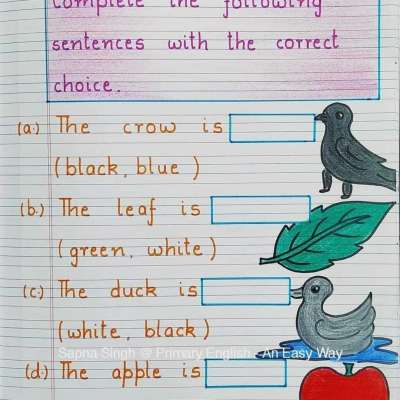 complete the following
sentences with the correct
choice.
(a.) The crow is
(black, blue)
(b.) The leaf is
(green, white)
(c.) The duck is
(white, black)
Sapna Singh @ Primary English : An Easy Way
(d.) The apple is